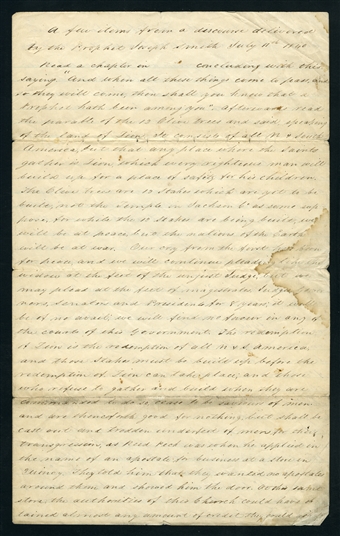 A few items from a discourse delivered
by the Prophet Joseph Smith July 19th 1840
Read a chapter in " concluding with this
saying "And when all these things come to pass and
lo they will come, then shall you know that a
Prophet hath been among you". Afterwards read
the parable of the 12 Olive Trees and said speaking
of the Land of Zion, It consists of all N & South
America, but that any place where the Saints
gather is Zion which every righteous man will
build up for a place of safety for his children
The Olive trees are 12 Stakes which are yet to be
built, not the Temple in Jackson Co as some sup
pose, for while the 12 Stakes are being built we
will be at peace, but the nations of the Earth
will be at war. Our cry from the first has been
for peace, and we will continue pleading like the
widow at the feet of the unjust Judge, but we
may plead at the feet of magistrates, Judges,
nors, Senators and Presidents for 8 years it will
be of no avail; we will find no favor in any of
the courts of this Government. The redemption
of Zion is the redemption of all N & S America
and those Stakes must be built up before the
redemption of Zion can take place, and those
who refuse to gather and build when they are
commanded to do so cease to be saviors of men
and are thenceforth good for nothing, but shall be
cast out and trodden underfeet of men for their
transgression, as Reed Peck was when he applied in
the name of an apostate for business at a store in
Quincy. They told him that they wanted no apostates
around them and showed him the door. At this same
store the authorities of this Church could have
tained almost any amount of credit they could